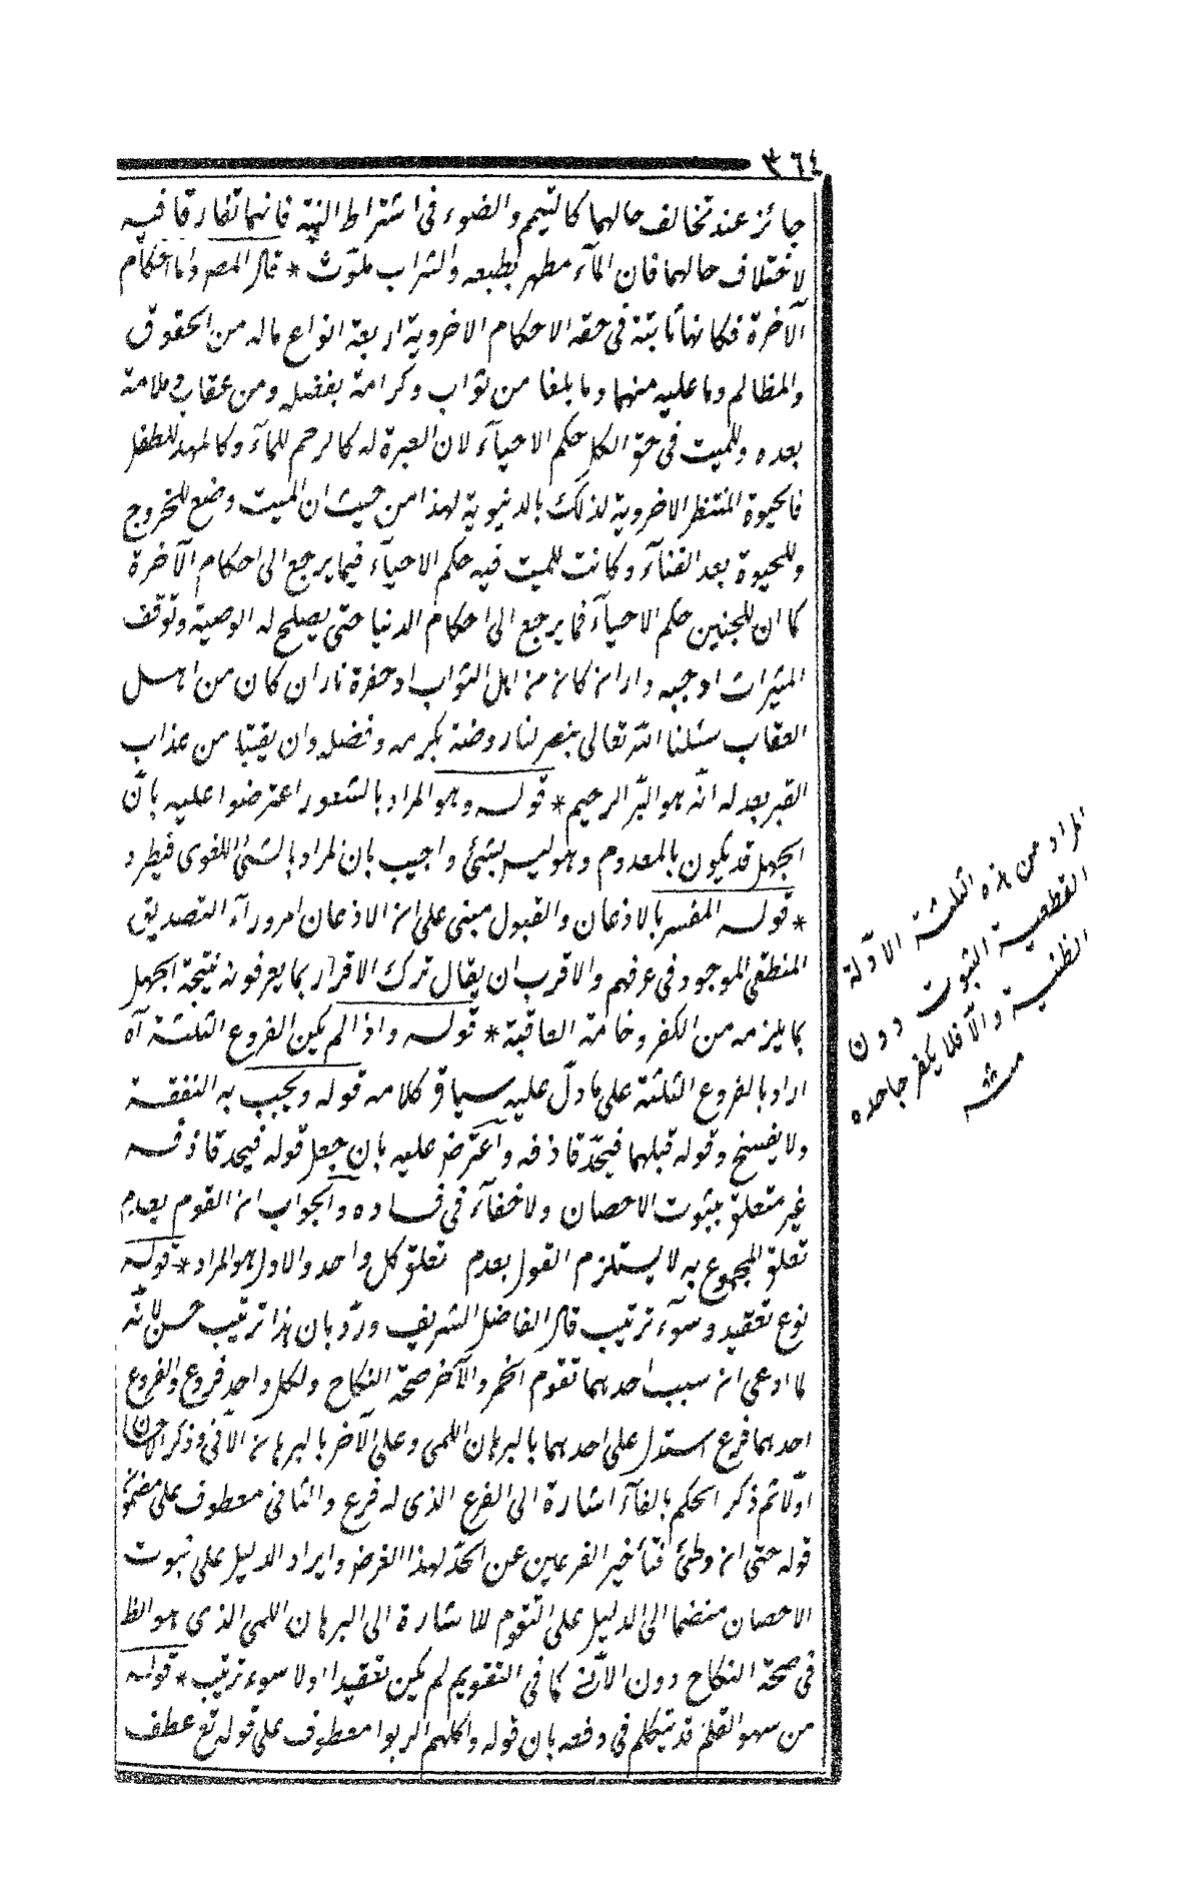 ٣٦٤
جائز عند تخالف حالهما كالتيمم والضوء فى اشتراط النية فانهما تفارقا فيه
لاختلاف حالهما فان المآء مطهر بطبعه والتراب ملوّث * قال المص واما احكام
الآخرة فكانها ثابتة فى حقه الاحكام الاخروية اربعة انواع ماله من الحقوق
والمظالم وما عليه منهما وما يلقا من ثواب وكرامة بفضله ومن عقاب وملامة
بعده وللميت فى حق الكل حكم الاحيآء لان القبر له كالرحم للمآء وكالمهد للطفل
فالحيوة المنتظر الاخروية لذلك بالدنيوية لهذا من حيث ان الميت وضع للخروج
وللحيوة بعد الفنآء وكانت للميت فيه حكم الاحيآء فيما يرجع الى احكام الآخرة
كما ان للجنين حكم الاحيآء فما يرجع الى احكام الدنيا حتى يصلح له الوصية وتوقف
الميراث اوجبه دار ان كان من اهل الثواب او حفرة نار ان كان من اهل
العقاب سئلنا الله تعالى بنصر لنا روضة بكرمه وفضله وان يقينا من عذاب
القبر بعدله انّه هو البّر الرحيم * قوله وهو المراد بالشعور اعترضوا عليه بانّ
الجهل قد يكون بالمعدوم وهو ليس بشئ واجيب بان المراد بالشئ اللغوى فيطرد
* قوله المفسر بالاذعان والقبول مبنى على ان الاذعان امر ورآء التصديق
المنطقى الموجود فى عرفهم والاقرب ان يقال ترك الاقرار بما يعرفونه نتيجة الجهل
بما يلزمه من الكفر وخامة العاقبة * قوله واذا لم يكن الفروع الثلثة آه
اراد بالفروع الثلثة على ما دلّ عليه سياق كلامه قوله ويجب به النفقة
ولا يفسخ وقوله قبلهما فيحّد قاذفه واعترض عليه بان جعل قوله فيحد قاذفه
غير متعلق بثبوت الاحصان ولا خفآء فى فساده والجواب ان القوم بعدم
تعلق المجموع به لا يستلزم القول بعدم تعلق كل واحد والاول هو المراد * قوله
نوع تعقيد وسوء ترتيب قال الفاضل الشريف وردّ بان هذا ترتيب حسن لانّه
لما ادعى ان سبب احدهما تقوم الخمر والآخر صحة النكاح ولكل واحد فروع والفروع
احدهما فرع استدل على احدهما بالبرهان اللمى وعلى الآخر بالبرهان الآنى وذكر الاحصان
اوّلا ثم ذكر الحكم بالفآء اشارة الى الفرع الذى له فرع والثانى معطوف على مضمون
قوله حتى ان وطئ فتأخير الفرعين عن الحدّ لهذا الغرض وايراد الدليل على ثبوت
الاحصان منضما الى الدليل على التقوم للاشارة الى البرهان اللمى الذى هو الظ
فى صحة النكاح دون الآنى كما فى التقويم لم يكن تعقيدا ولا سوء ترتيب * قوله
من سهو القلم قد تيكلم فى دفعه بان قوله واكلهم الربوا معطوف على قوله تع عطف
المراد من هذه الثلثة الادّلة
القطعية الثبوت دون
الظنية والّا فلا يكفر جاحده